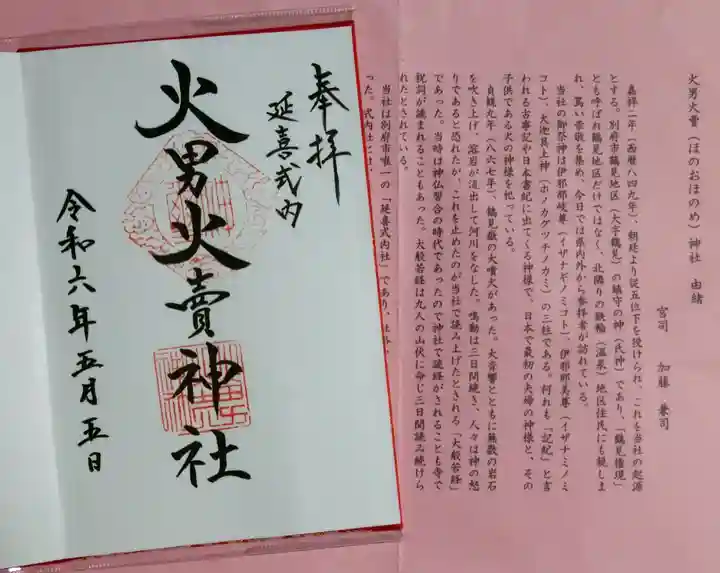 奉拝
延喜式内
火男火賣神社
令和六年五月五日
火男火賣(ほのおほのめ)神社 由緒
宮司 加藤 兼司
嘉祥二年(西暦八四九年)、朝廷より従五位下を授けられ、これを当社の起源
とする。別府市鶴見地区(大字鶴見)の鎮守の神(氏神)であり、「鶴見権現」
とも呼ばれ鶴見地区だけではなく、北隣りの鉄輪(温泉)地区住民にも親しま
れ、篤い崇敬を集め、今日では県内外から参拝者が訪れている。
当社の御祭神は伊邪那岐尊(イザナギノミコト)、伊邪那美尊(イザナミノミ
コト)、火迦具土神(ホノカグツチノカミ)の三柱である。何れも「記紀」と言
われる古事記や日本書紀に出てくる神様で、日本で最初の夫婦の神様と、その
子供である火の神様を祀っている。
貞観九年(八六七年)、鶴見嶽の大噴火があった。大音響とともに無数の岩石
を吹き上げ、溶岩が流出して河川をなした。鳴動は三日間続き、人々は神の怒
りであると恐れたが、これを止めたのが当社で読み上げたとされる「大般若経」
であった。当時は神仏習合の時代であったので神社で読経がされることも寺で
祝詞が読まれることもあった。大般若経は九人の山伏に命じ三日間読み続けら
れたとされている。
当社は別府市唯一の「延喜式内社」であり、
った。式内社とは、